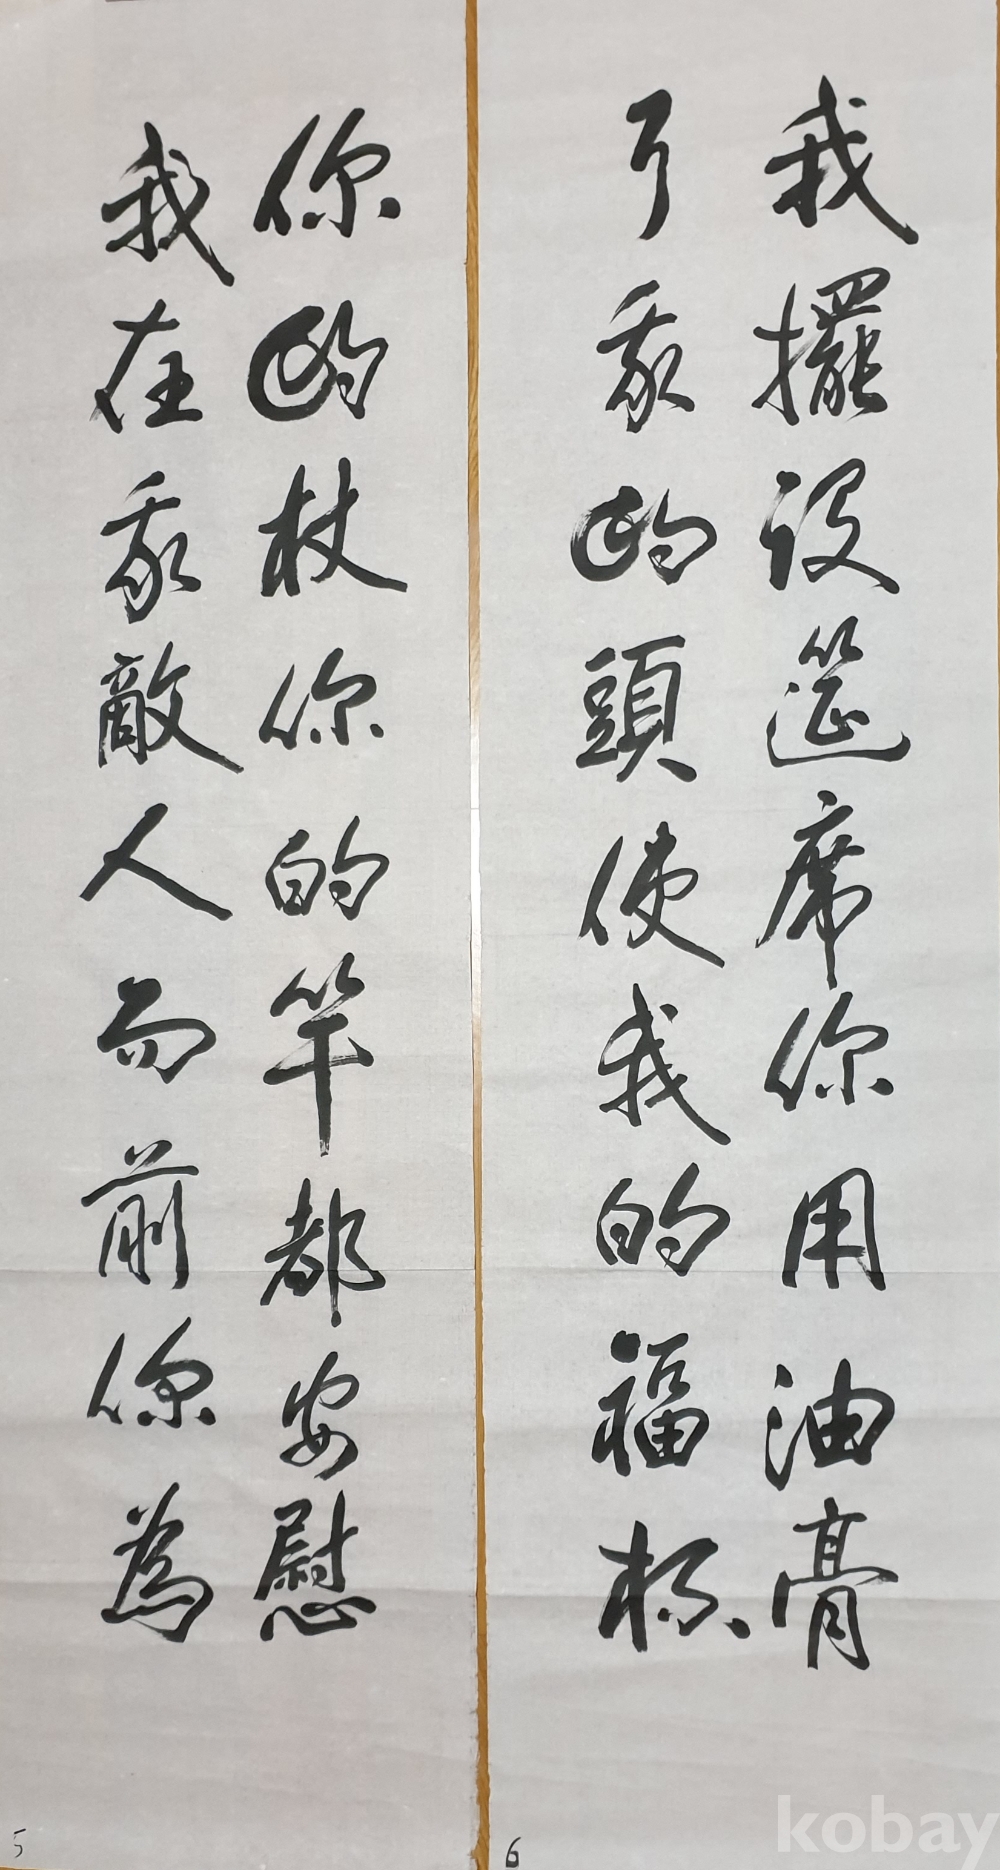 你的杖你的竿都安慰
我在我敵人面前你為
5
我擺設筵席你用油膏
了我的頭使我的福杯
6
kobay